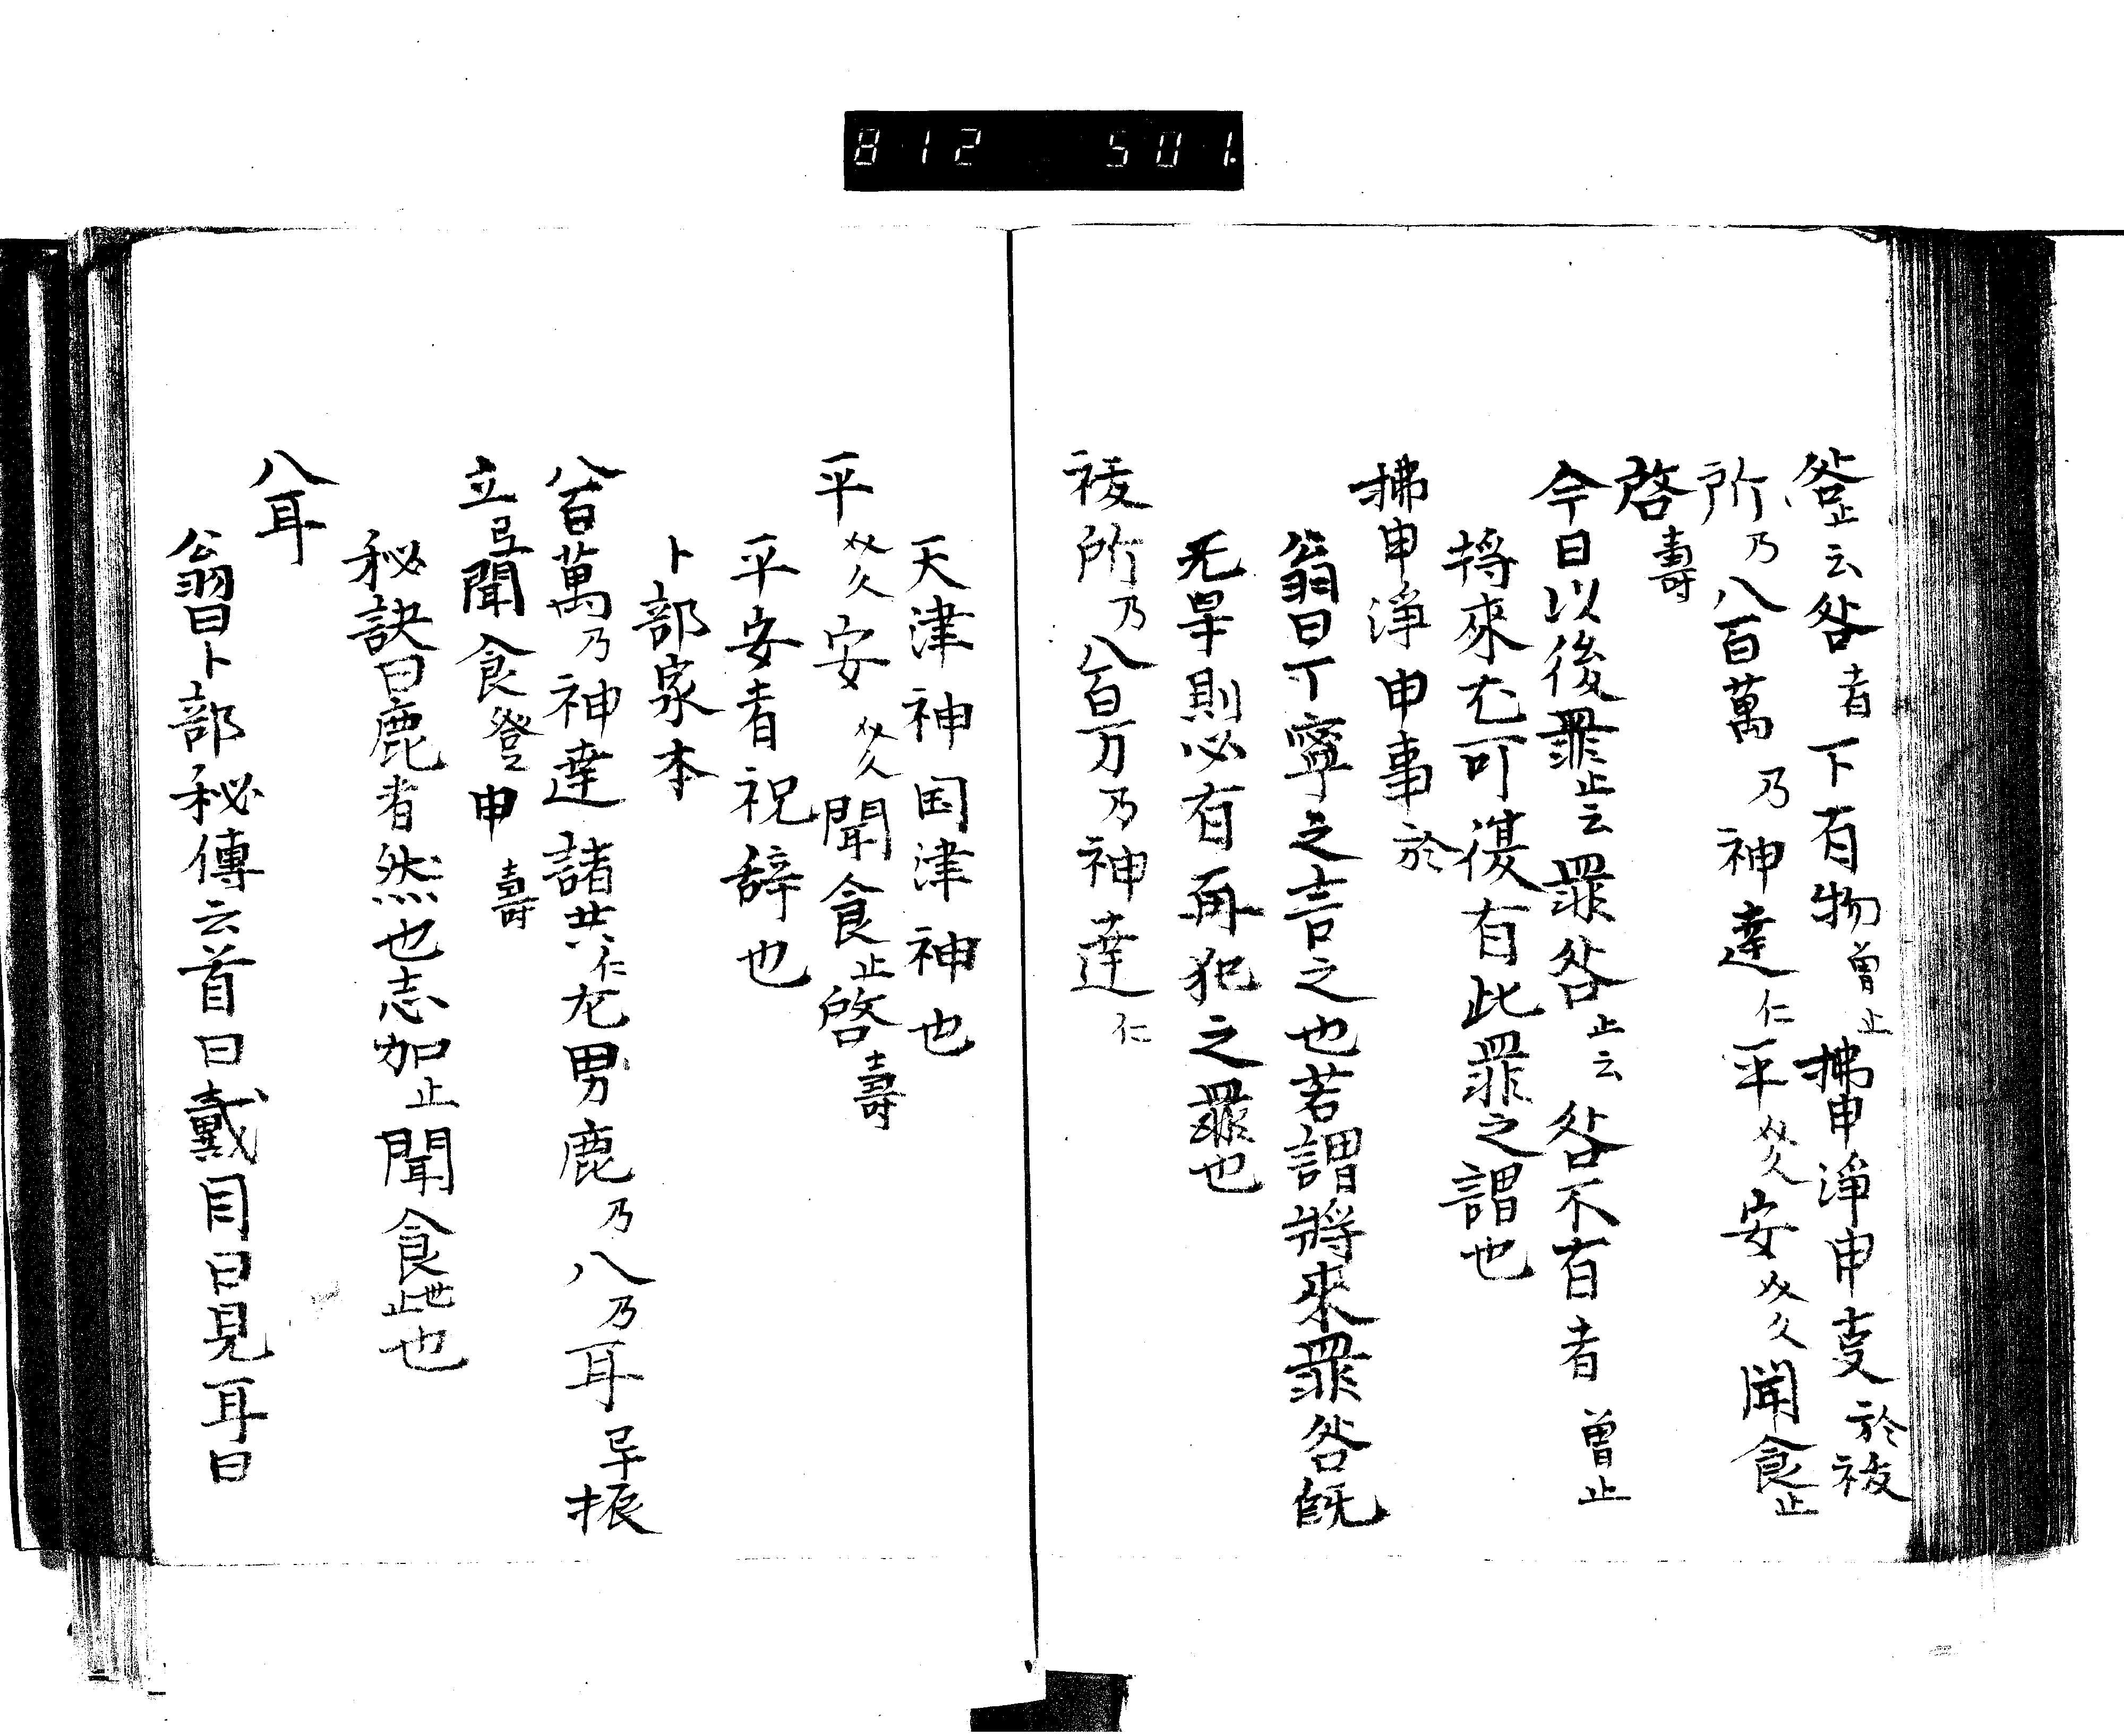 812 501
咎止云咎者下有物曽止拂申淨申叓於祓
所乃八百萬乃神達仁平久安久聞食止
啓壽
今日以後罪止云罪咎止云咎不有者曽止
将來尤可復有此罪之謂也
拂申淨申事於
翁曰丁寧之言之也若謂將來罪咎既
无辜則必有再犯之罪也
祓所乃八百万乃神達仁
天津神国津神也
平久安久聞食止啓壽
平安者祝辞也
卜部家本
八百萬乃神達諸共仁尤男鹿乃八乃耳乎振
立弖聞食登申壽
秘訣曰鹿者然也志加止聞食世止也
八耳
翁曰卜部秘傳云首曰戴目曰見耳曰